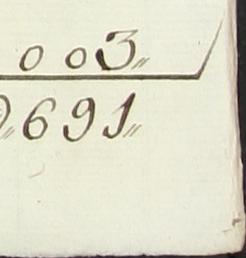 003"
"691"